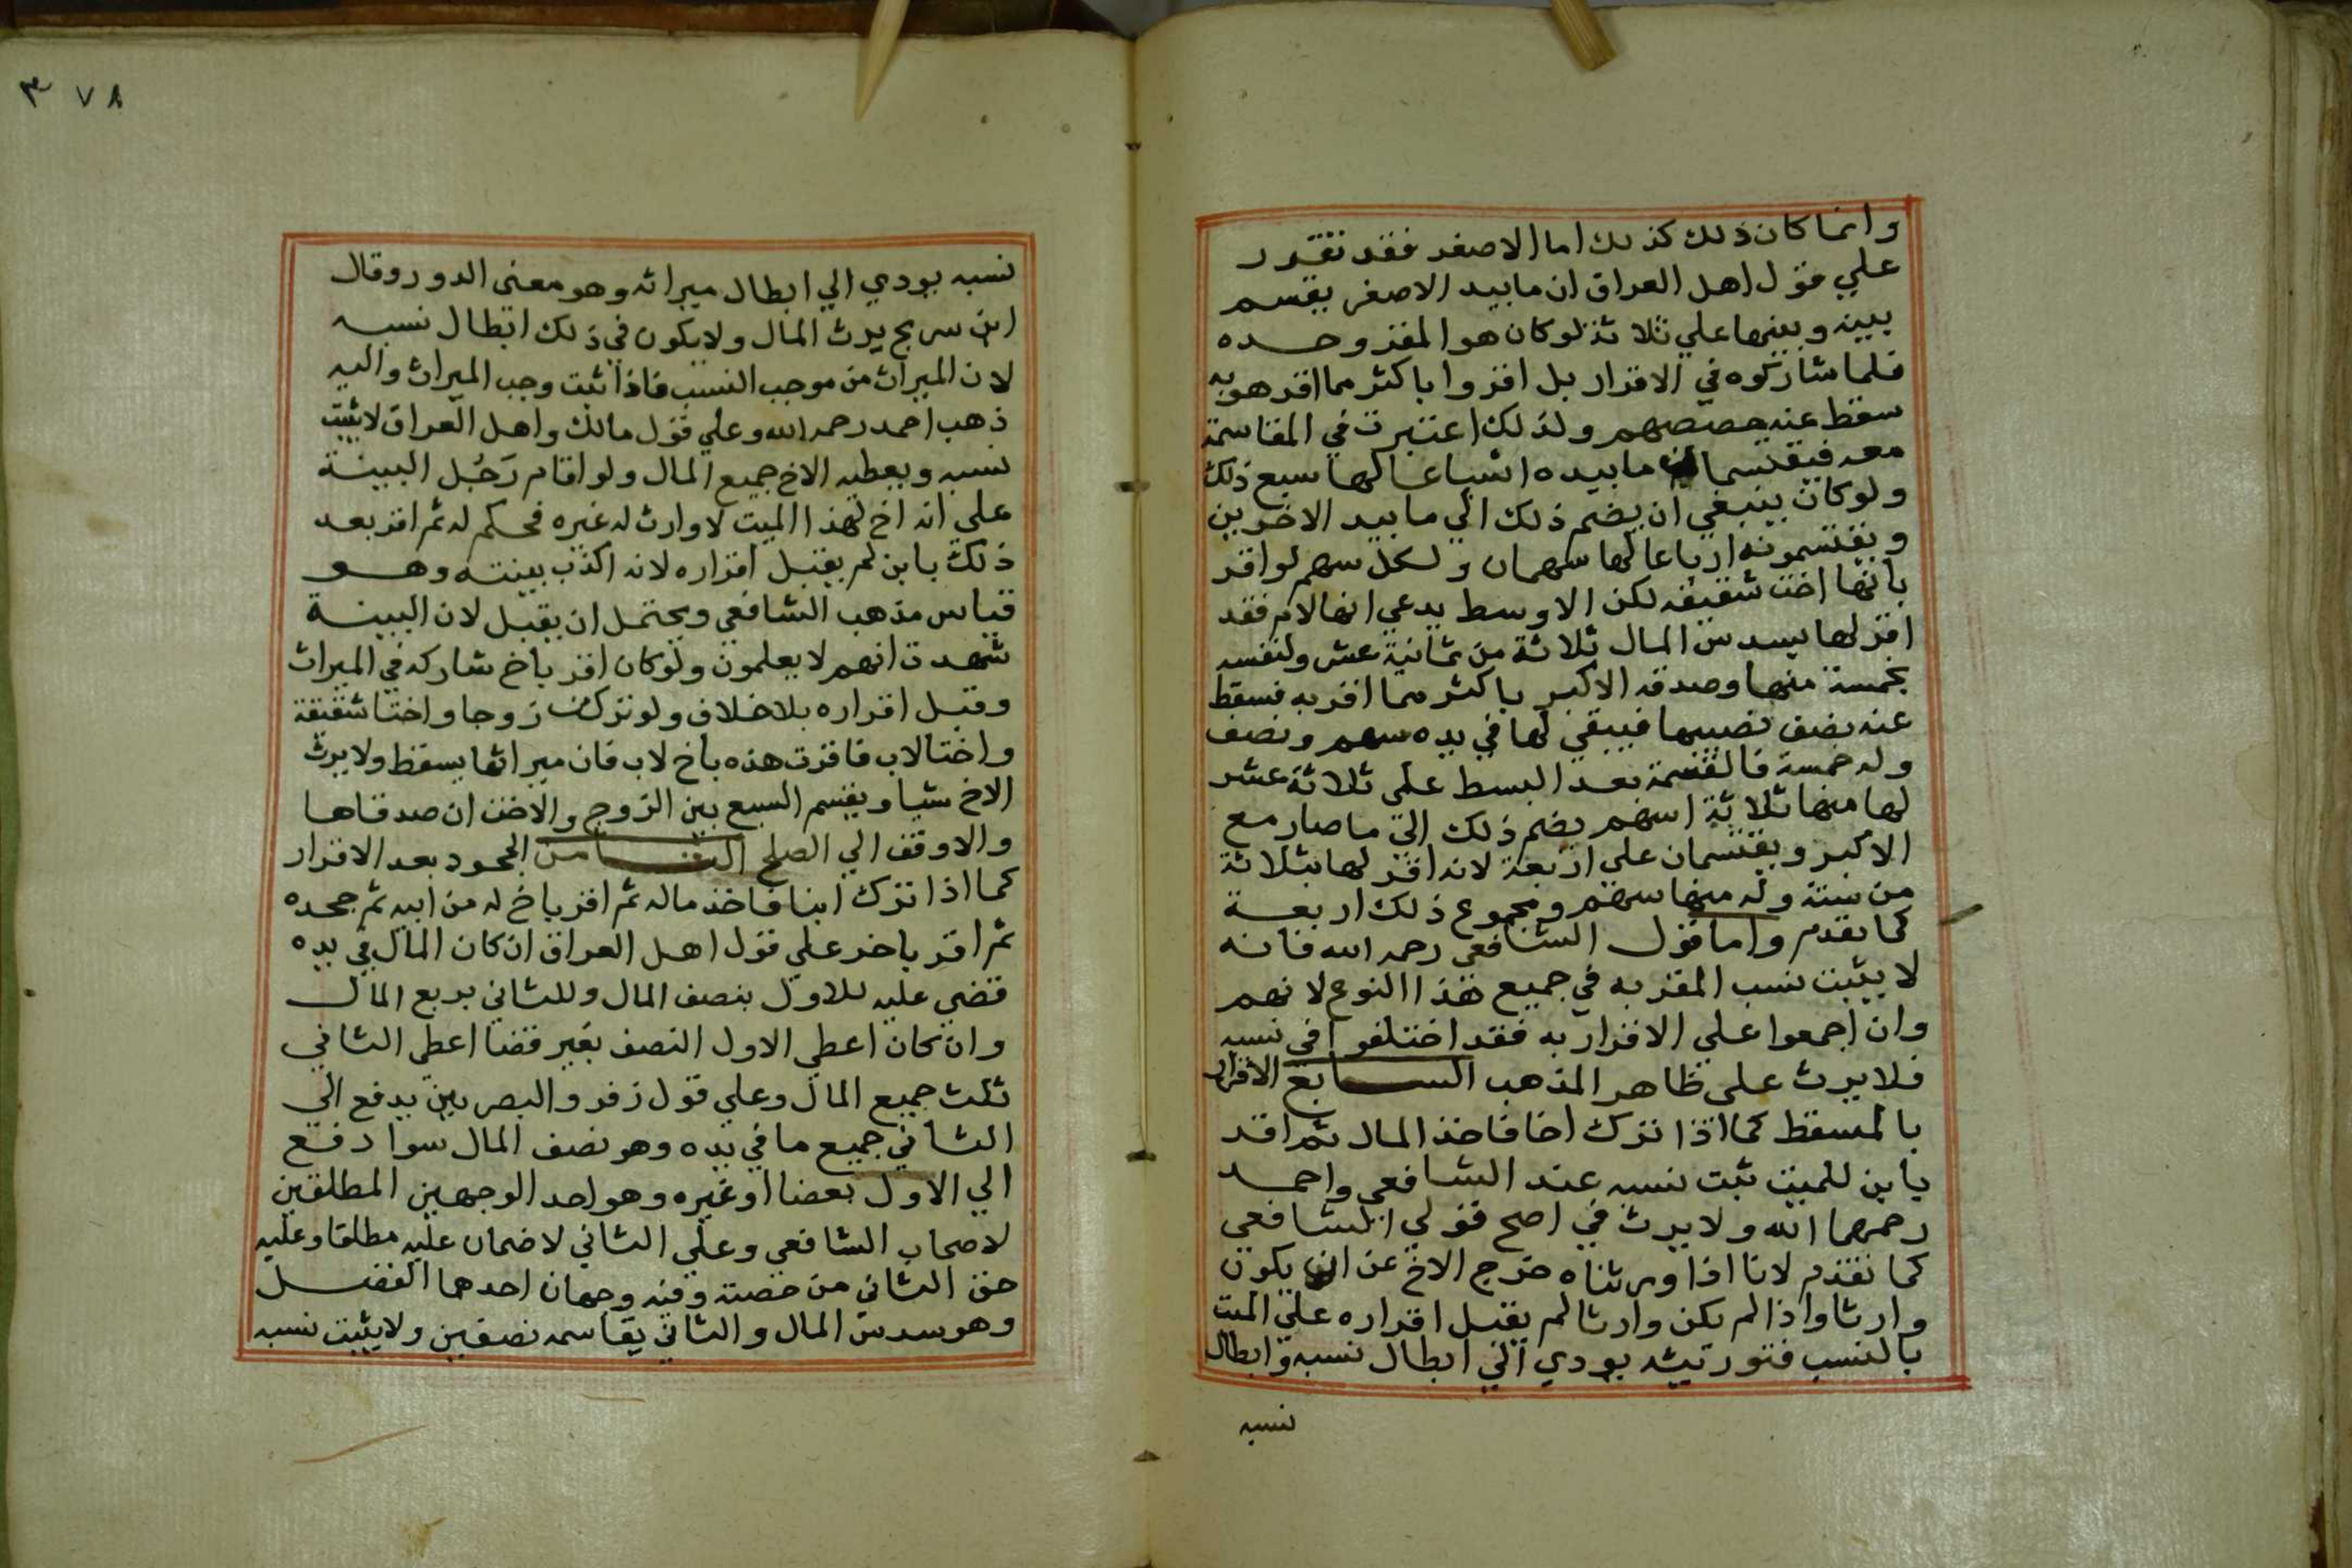 وانما كان ذلك كذلك اما الاصغر فقد تقرر
علي قول اهل العراق ان مابيد الاصغر يقسم
بينه وبينها علي ثلاثة لو كان هو المقر وحده
فلما شاركوه في الاقرار بل اقروا باكثر مما اقر هو به
سقط عنه حصصهم ولذلك اعتبرت في المقاسمة
معه فيقتسمان مابيده اسباعا لها سبع ذلك
ولو كان ينبغي ان يضم ذلك الي مابيد الاخرين
ويقتسمونه ارباعا لها سهمان ولكل سهم لو اقر
بانها اخت شقيقه لكن الاوسط يدعي انها لام فقد
اقر لها بسدس المال ثلاثة من ثمانية عشر ولنفسه
بخمسة منها وصدقه الاكبر باكثر مما اقر به فسقط
عنه نصف نصيبها فيبقي لها في يده سهم ونصف
وله خمسة فالقسمة بعد البسط علي ثلاثة عشر
لها منها ثلاثة اسهم يضم ذلك الي ماصار مع
الاكبر ويقتسمان علي اربعة لانه اقر لها بثلاثة
من ستة وله منها سهم ومجموع ذلك اربعة
كما تقدم واما قول الشافعي رحمه الله فانه
لا يثبت نسب المقر به في جميع هذا النوع لانهم
وان اجمعوا علي الاقرار به فقد اختلفوا في نسبه
فلا يرث علي ظاهر المذهب السابع الاقرار
بالمسقط كما اذا ترك اخا فاخذ المال ثم اقر
بابن للميت ثبت نسبه عند الشافعي واحمد
رحمهما الله ولا يرث في اصح قولي الشافعي
كما تقدم لانا اذا ورثناه خرج الاخ عن ان يكون
وارثا واذا لم يكن وارثا لم يقبل اقراره علي الميت
بالنسب فتوريثه يودي الي ابطال نسبه وابطال
نسبه
٣٧٨
نسبه يودي الي ابطال ميراثه وهو معني الدور وقال
ابن سريج يرث المال ولا يكون في ذلك ابطال نسبه
لان الميراث من موجب النسب فاذا ثبت وجب الميراث واليه
ذهب احمد رحمه الله وعلي قول مالك واهل العراق لا يثبت
نسبه ويعطيه الاخ جميع المال ولو اقام رَجُل البينة
علي انه اخ لهذا الميت لا وارث له غيره فحكم له ثم اقر بعد
ذلك بابن لم يقبل اقراره لانه اكذب بينته وهو
قياس مذهب الشافعي ويحتمل ان يقبل لان البينة
شهدت انهم لا يعلمون ولو كان اقر باخ شاركه في الميراث
وقبل اقراره بلا خلاف ولو تركت زوجا واختا شقيقة
واختا لاب فاقرت هذه باخ لاب فان ميراثها يسقط ولا يرث
الاخ شيا ويقسم السبع بين الزوج والاخت ان صدقاها
والا وقف الي الصلح الثامن الجحود بعد الاقرار
كما اذا ترك ابنا فاخذ ماله ثم اقر باخ له من ابيه ثم جحده
ثم اقر باخر علي قول اهل العراق ان كان المال في يده
قضي عليه للاول بنصف المال وللثاني بربع المال
وان كان اعطي الاول النصف بغير قضا اعطي الثاني
ثلث جميع المال وعلي قول زفر والبصريين يدفع الي
الثاني جميع ما في يده وهو نصف المال سوا دفع
الي الاول بقضا او غيره وهو احد الوجهين المطلقين
لاصحاب الشافعي وعلي الثاني لا ضمان عليه مطلقا وعليه
حق الثاني من حصته وفيه وجهان احدهما الفضل
وهو سدس المال والثاني يقاسمه نصفين ولا يثبت نسبه